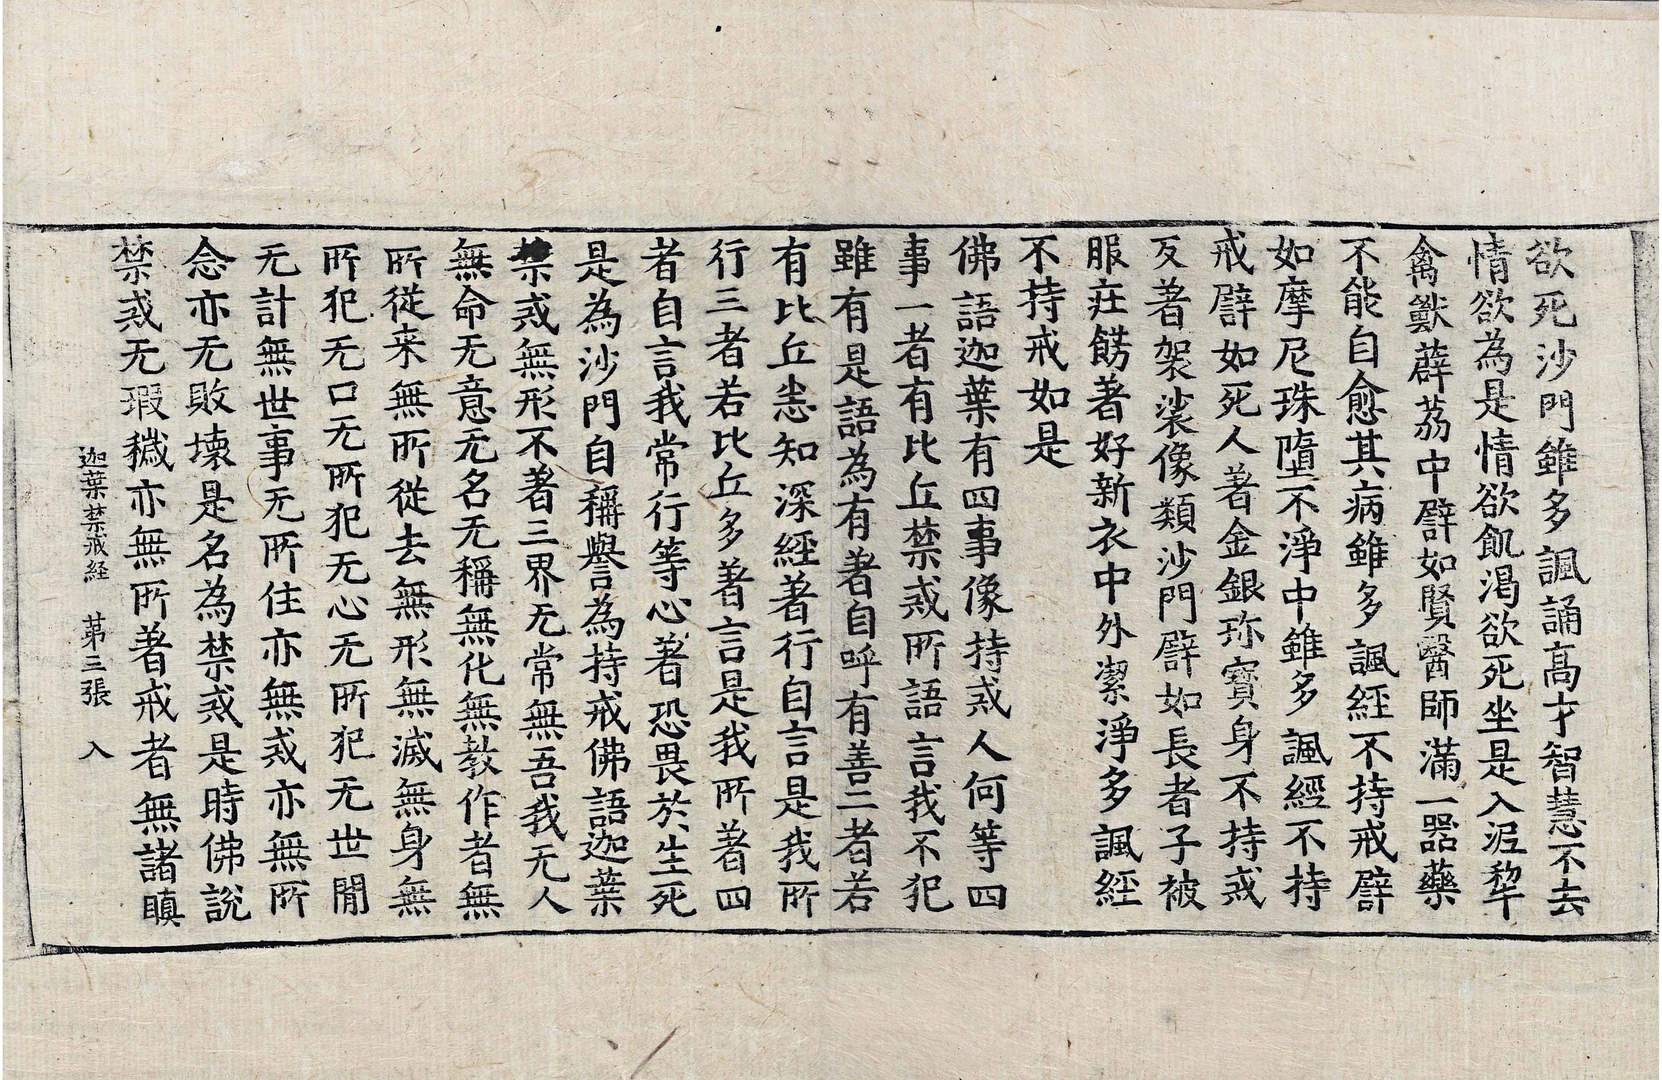 欲死沙門雖多諷誦高才智慧不去
情欲為是情欲飢渴欲死坐是入泥犁
禽獸薜荔中譬如賢醫師滿一器藥
不能自愈其病雖多諷經不持戒譬
如摩尼珠墮不淨中雖多諷經不持
戒譬如死人著金銀珎寶身不持戒
反著袈裟像類沙門譬如長者子被
服莊餝著好新衣中外潔淨多諷經
不持戒如是
佛語迦葉有四事像持戒人何等四
事一者有比丘禁戒所語言我不犯
雖有是語為有著自呼有善二者若
有比丘悉知深經著行自言是我所
行三者若比丘多著言是我所著四
者自言我常行等心著恐畏於生死
是為沙門自稱譽為持戒佛語迦葉
禁戒無形不著三界无常無吾我无人
無命无意无名无稱無化無教作者無
所從来無所從去無形無滅無身無
所犯无口无所犯无心无所犯无世閒
无計無世事无所住亦無戒亦無所
念亦无敗壞是名為禁戒是時佛說
禁戒无瑕穢亦無所著戒者無諸瞋
迦葉禁戒経 第三張 入